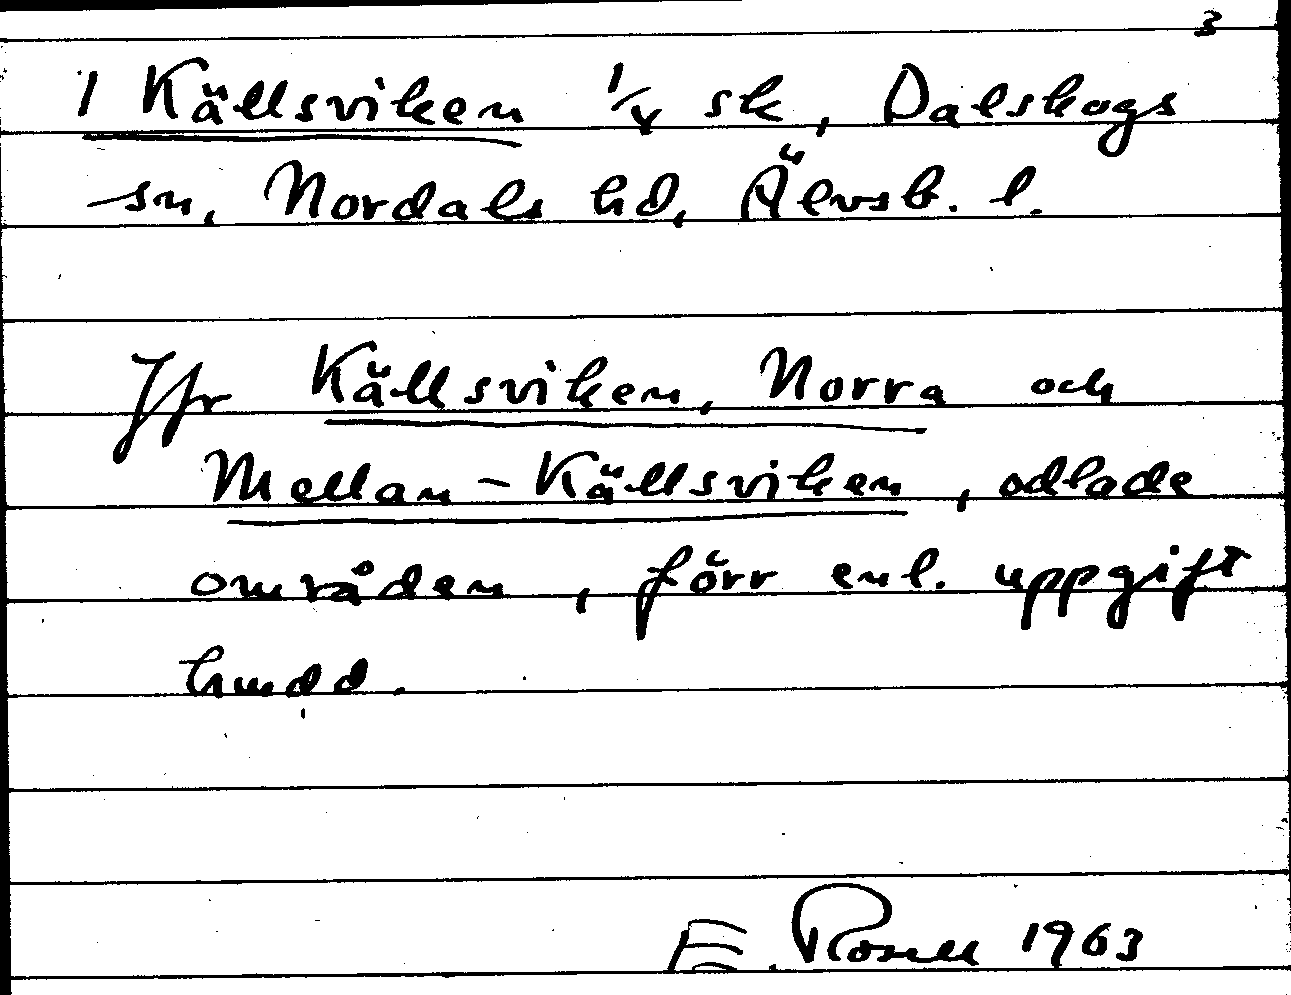 3
1 Källsviken 1/4 sk, Dalskogs
sn, Nordals hd, Älvsb. l.
Jfr Källsviken, Norra och
Mellan-Källsviken, odlade
områden, förr enl. uppgift
hmdd.
E. Rosell 1963